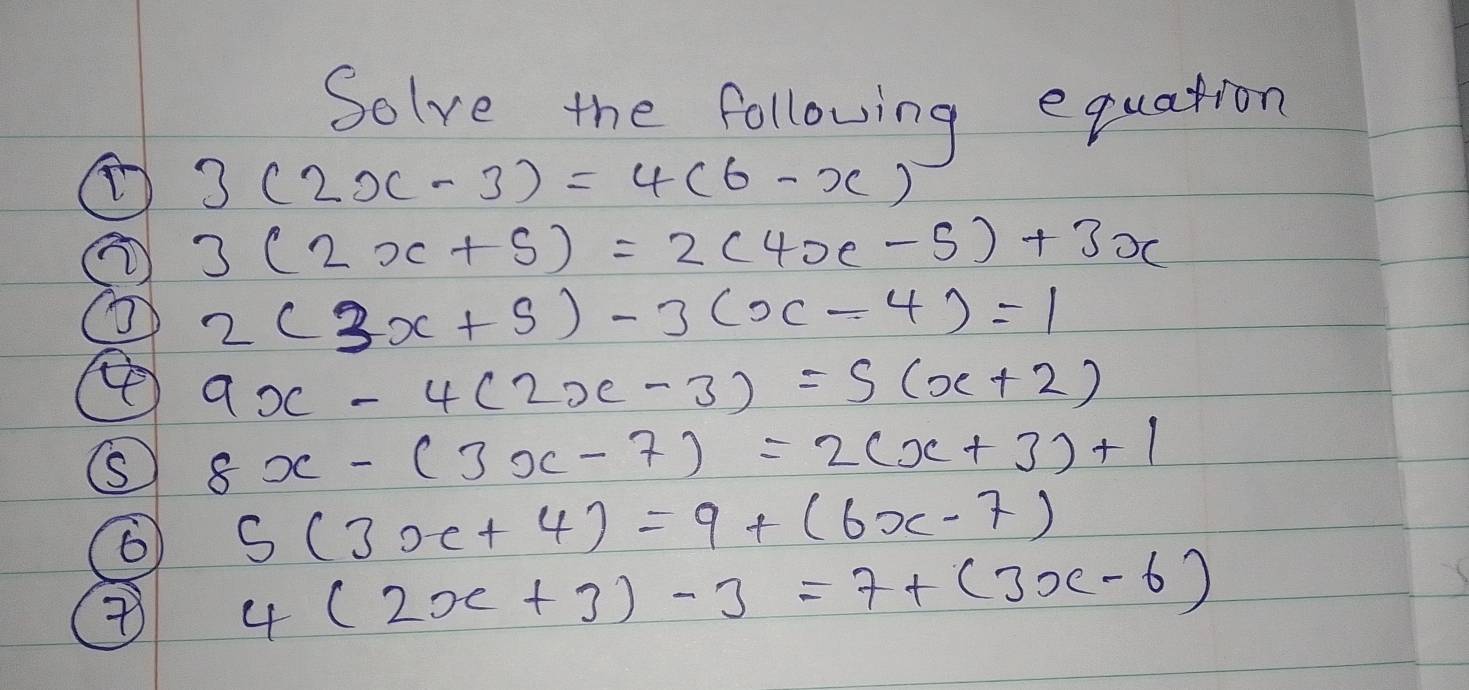 Solve the following equation
① 3(2x-3) = 4(6-x)
② 3(2x+5) = 2(4x-5)+3x
③ 2(3x+5)-3(x-4)=1
④ 9x-4(2x-3) = 5(x+2)
⑤ 8x-(3x-7) = 2(x+3)+1
⑥ 5(3x+4) = 9+(6x-7)
⑦ 4(2x+3)-3 = 7+(3x-6)